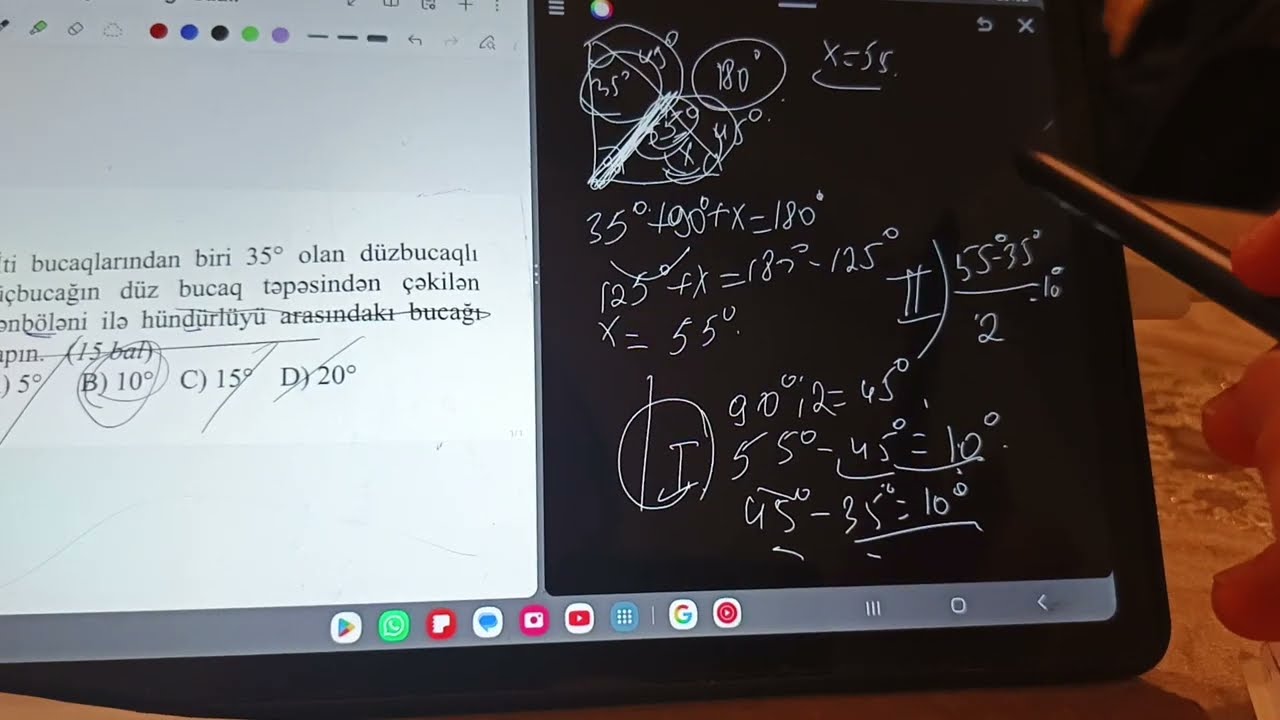 ti bucaqlarından biri 35° olan düzbucaqlı
içbucağın düz bucaq təpəsindən çəkilən
ənböləni ilə hündürlüyü arasındakı bucağı
apın. (15 bal)
) 5° B) 10° C) 15° D) 20°
1/1
45°
35°
180°
x=55.
55°
45°
x
35°+90°+x=180°
125°+x=180°-125°
x= 55°.
II) 55°-35°
=10°
2
I
90°:2=45°
55°-45°=10°.
45°-35°=10°